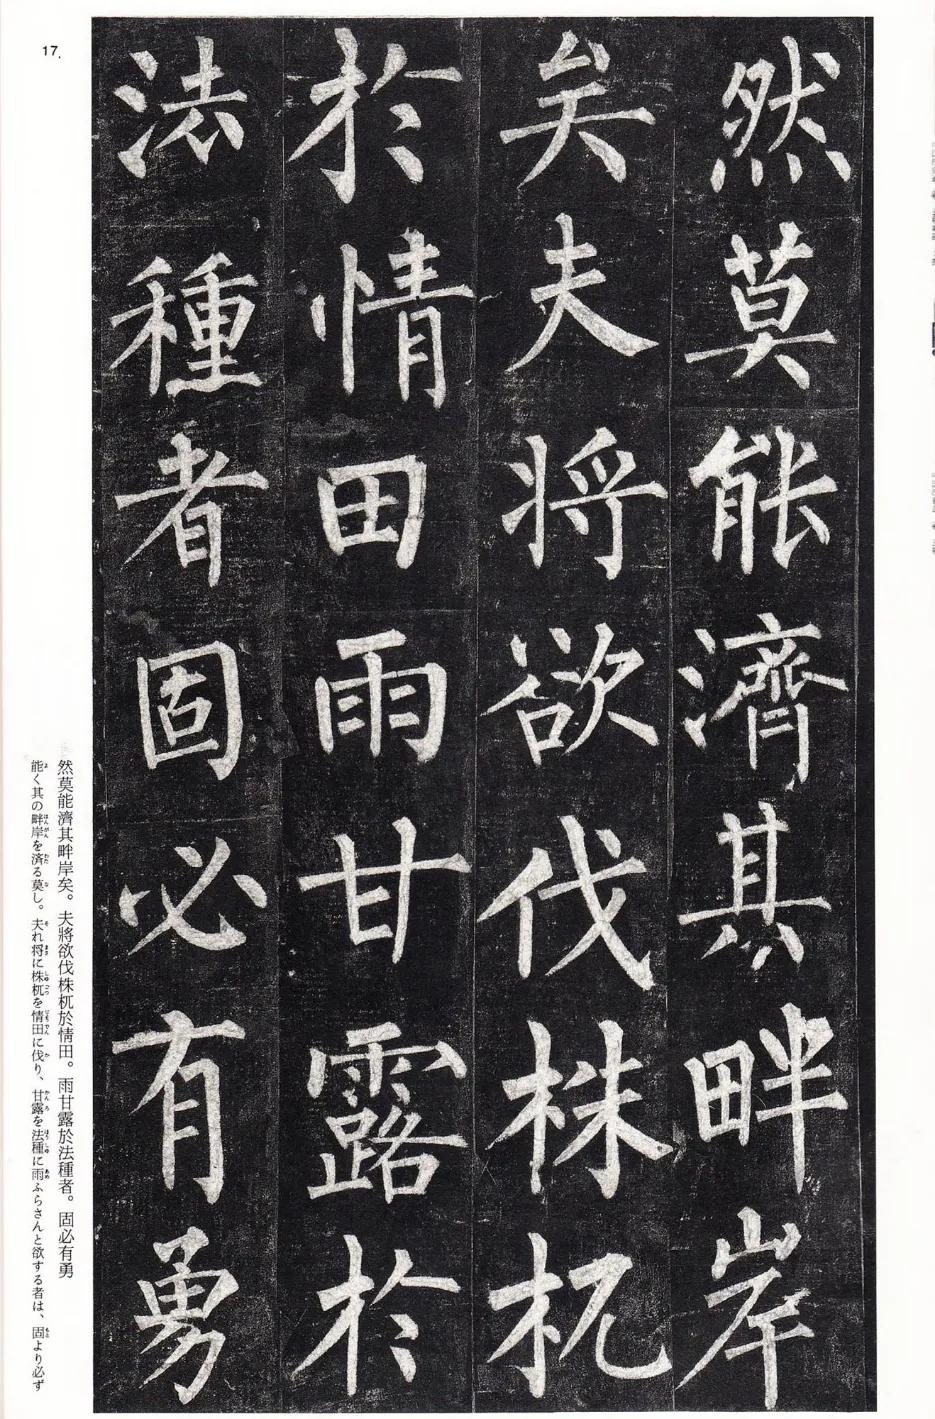 17.
然莫能濟其畔岸
矣夫将欲伐株杌
於情田雨甘露於
法種者固必有勇
然莫能濟其畔岸矣。夫將欲伐株杌於情田。雨甘露於法種者。固必有勇
能く其の畔岸を済る莫し。夫れ将に株杌を情田に伐り、甘露を法種に雨ふらさんと欲する者は、固より必ず